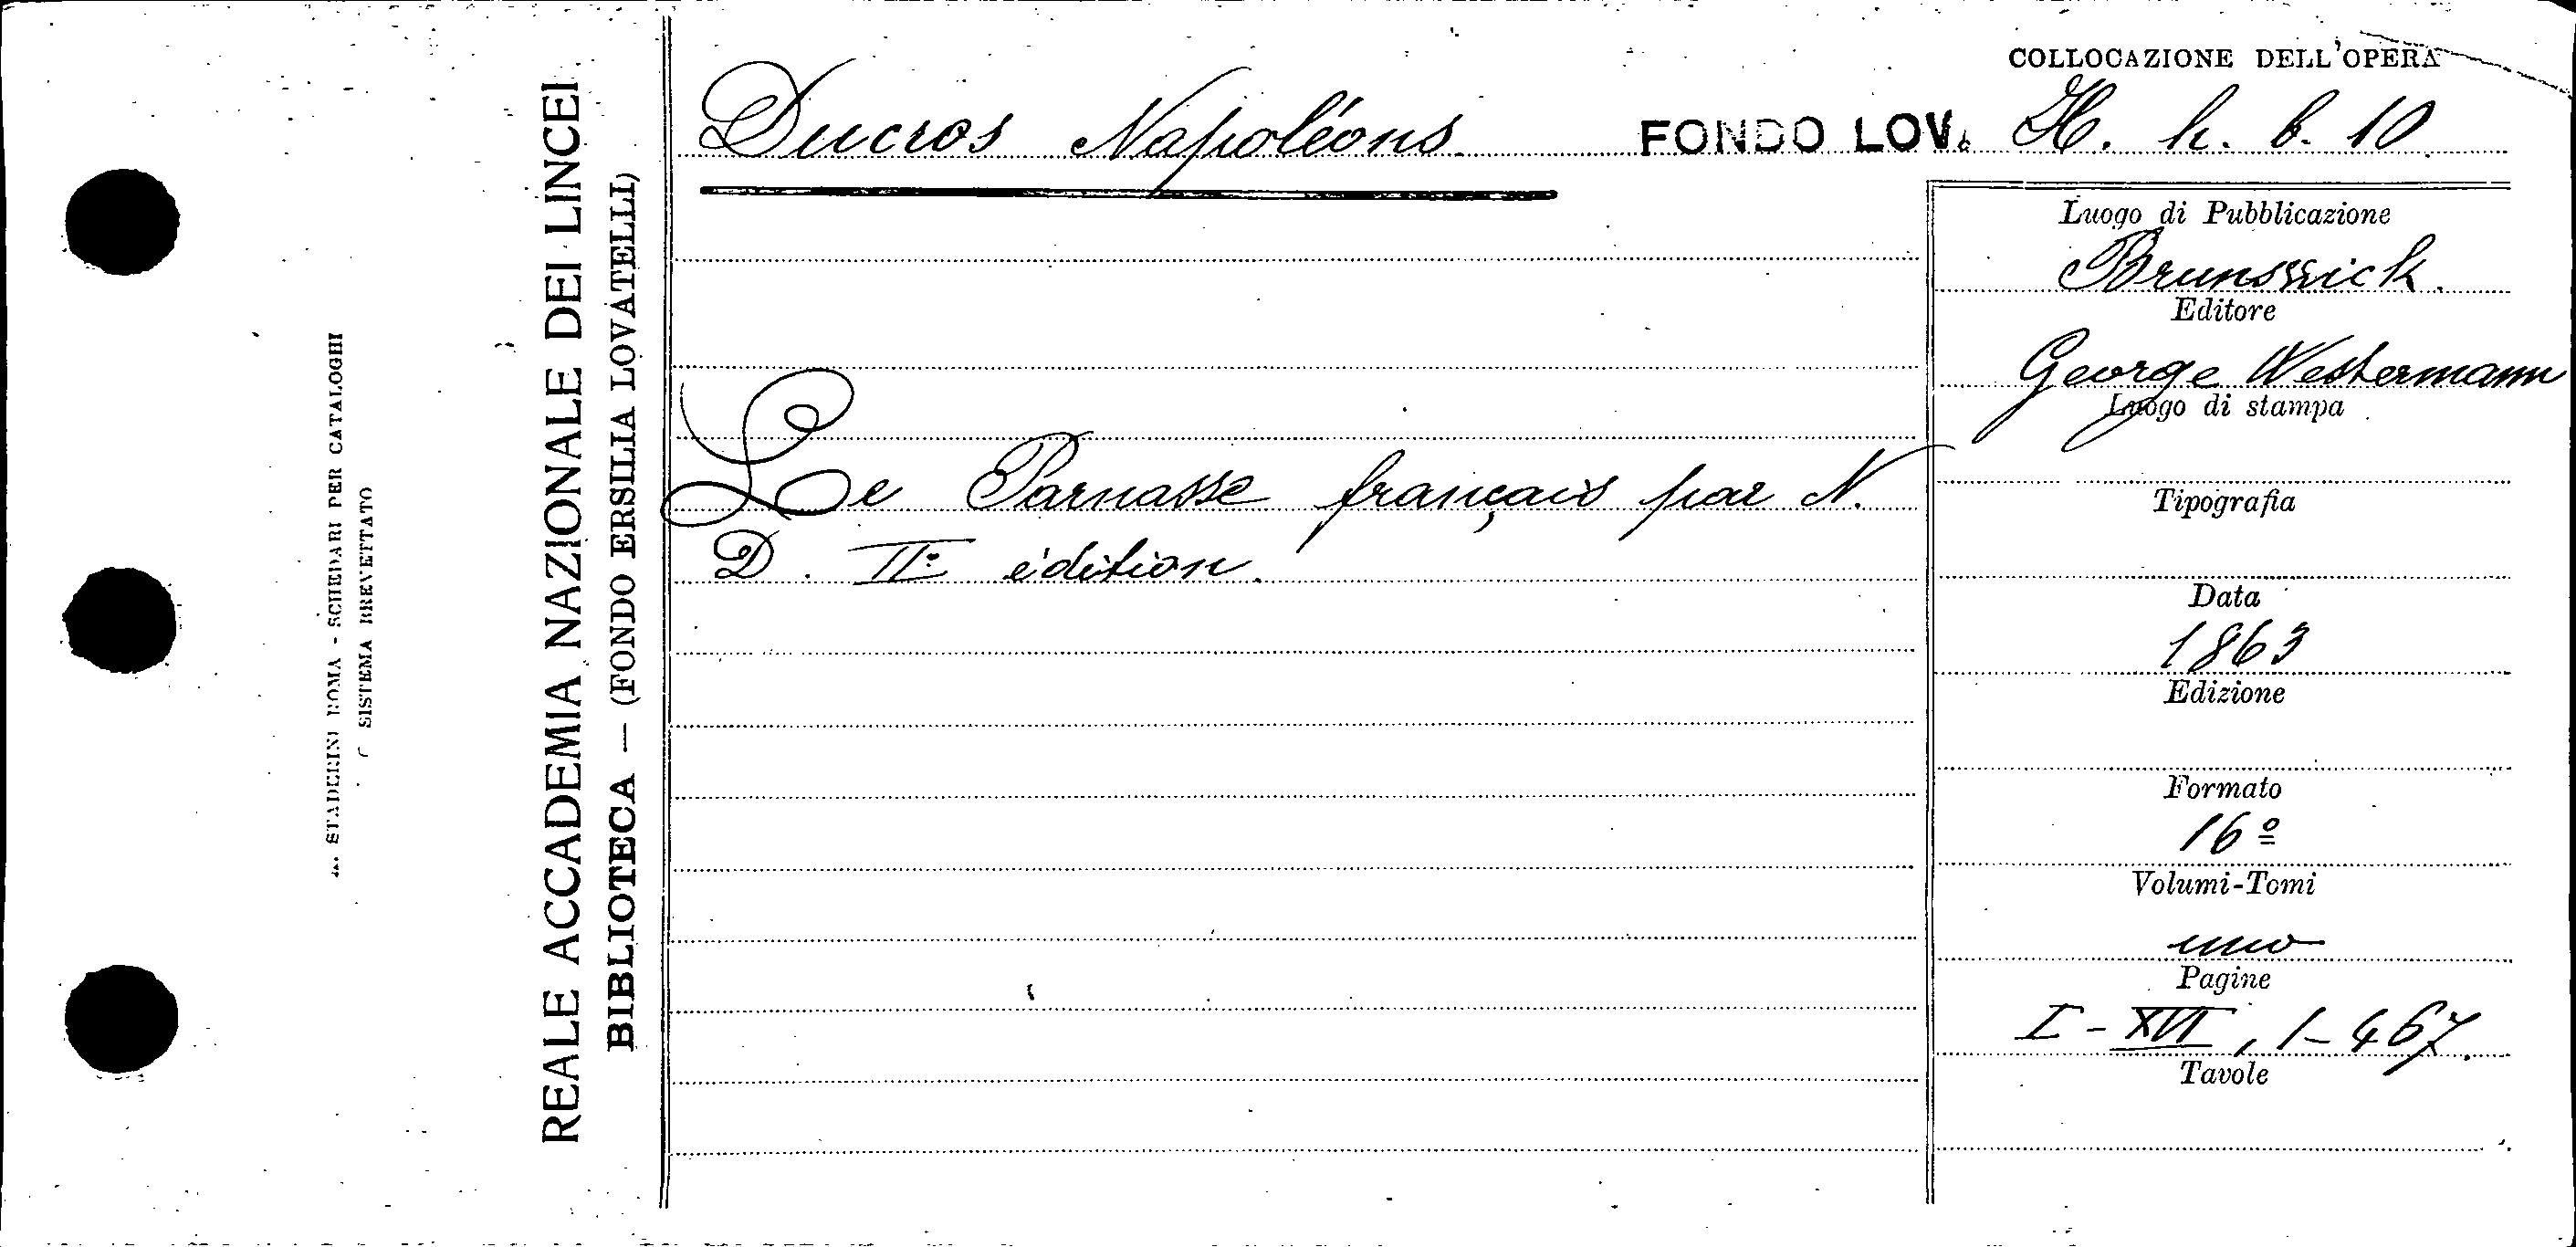 COLLOCAZIONE DELL'OPERA
Ducros Napoléons FONDO LOV. H. h. b. 10
Le Parnasse français par N.
D. IIº édition.
Luogo di Pubblicazione
Brunswick.
Editore
George Westermann
Luogo di stampa
Tipografia
Data
1863
Edizione
Formato
16º
Volumi-Tomi
uno
Pagine
I-XVI, 1-467.
Tavole
REALE ACCADEMIA NAZIONALE DEI LINCEI
BIBLIOTECA — (FONDO ERSILIA LOVATELLI)
STADERINI ROMA - SCHEDARI PER CATALOGHI
SISTEMA BREVETTATO